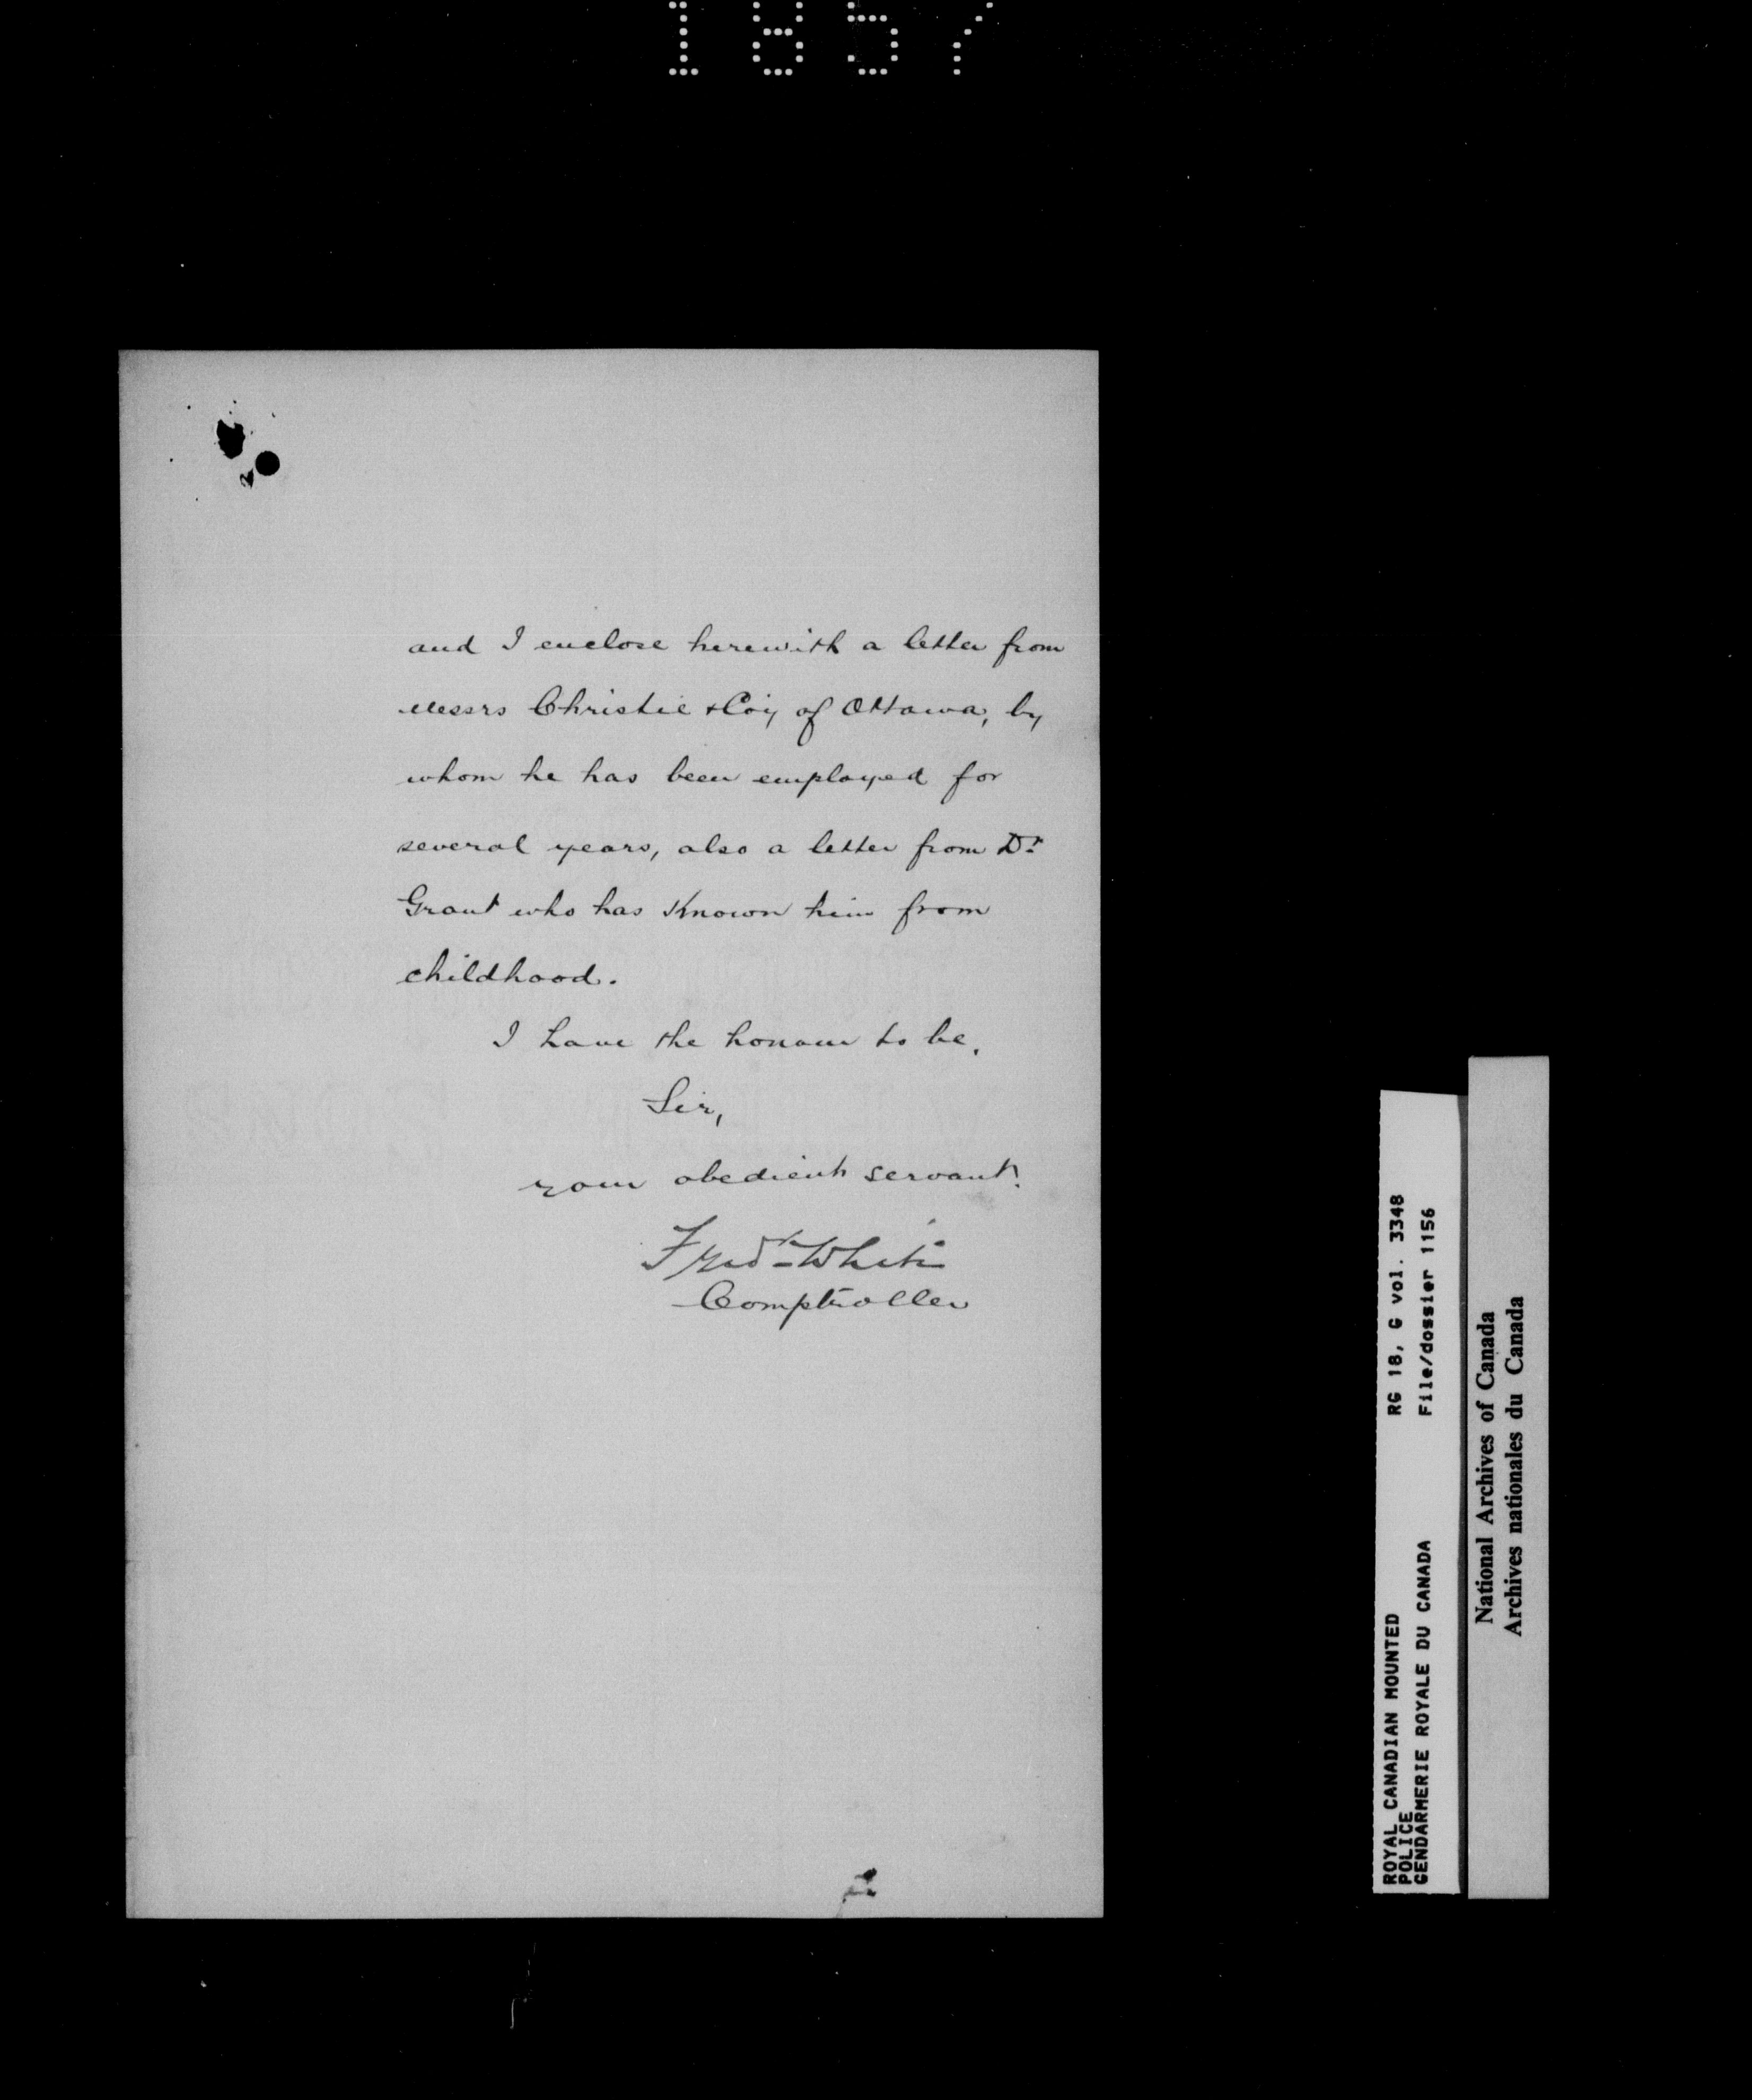 1857
and I enclose herewith a letter from
Messrs Christie & Coy of Ottawa, by
whom he has been employed for
several years, also a letter from Dr
Grant who has known him from
childhood.
I have the honour to be,
Sir,
your obedient servant.
Fred White
Comptroller
ROYAL CANADIAN MOUNTED
POLICE
GENDARMERIE ROYALE DU CANADA
RG 18, G vol. 3348
File/dossier 1156
National Archives of Canada
Archives nationales du Canada